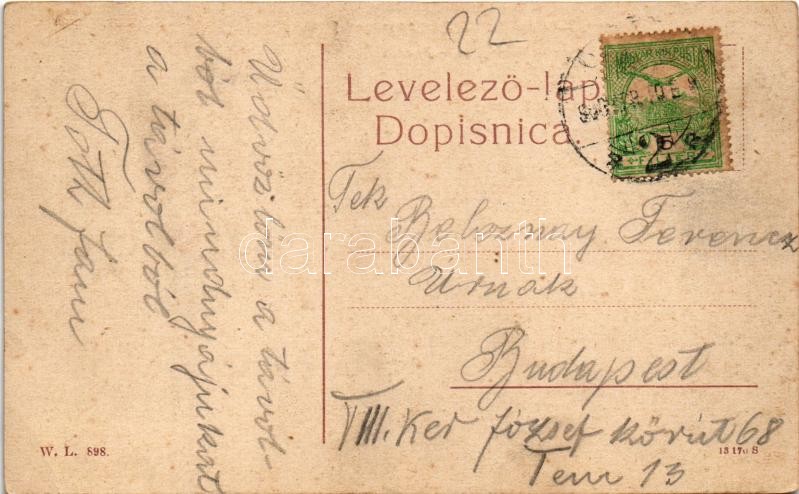 22
Levelező-lap.
Dopisnica.
MAGYAR KIR. POSTA
5
FILLER
Üdvözlom a távol-
ból mindnyájukat
a távolból
Tóth Jani
Tek
Beloznay Ferencz
Urnák
Budapest
VIII. Ker József körút 68
Tem 13
W. L. 898.
13170 S
darabanth